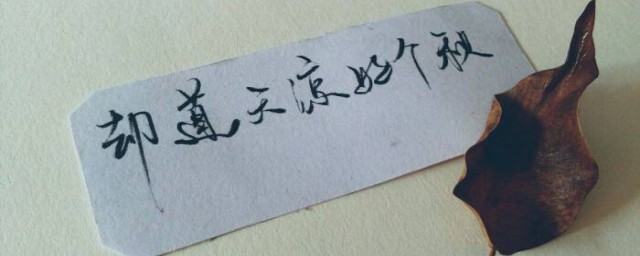 却道天凉好个秋